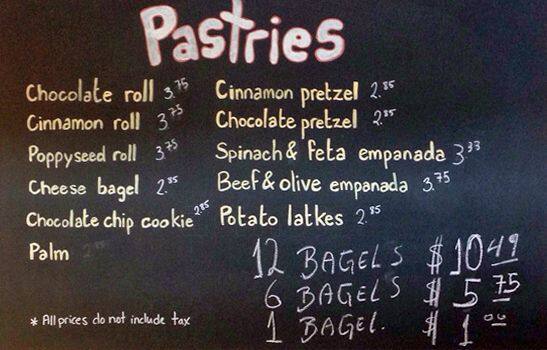 Pastries
Chocolate roll 3.75
Cinnamon roll 3.75
Poppyseed roll 3.75
Cheese bagel 2.85
Chocolate chip cookie 2.85
Palm
* All prices do not include tax
Cinnamon pretzel 2.85
Chocolate pretzel 2.85
Spinach & feta empanada 3.33
Beef & olive empanada 3.75
Potato latkes 2.85
12 BAGELS $10.49
6 BAGELS $5.75
1 BAGEL. $1.00